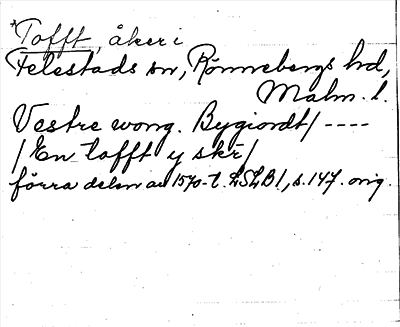 *Tofft, åker i
Felestads sn, Rönnebergs hd,
Malm. l.
Vestre wong. Bygiordt/ ----
/En tofft y skr/
förra delen av 1570-t. LSLB1, s. 147. orig.